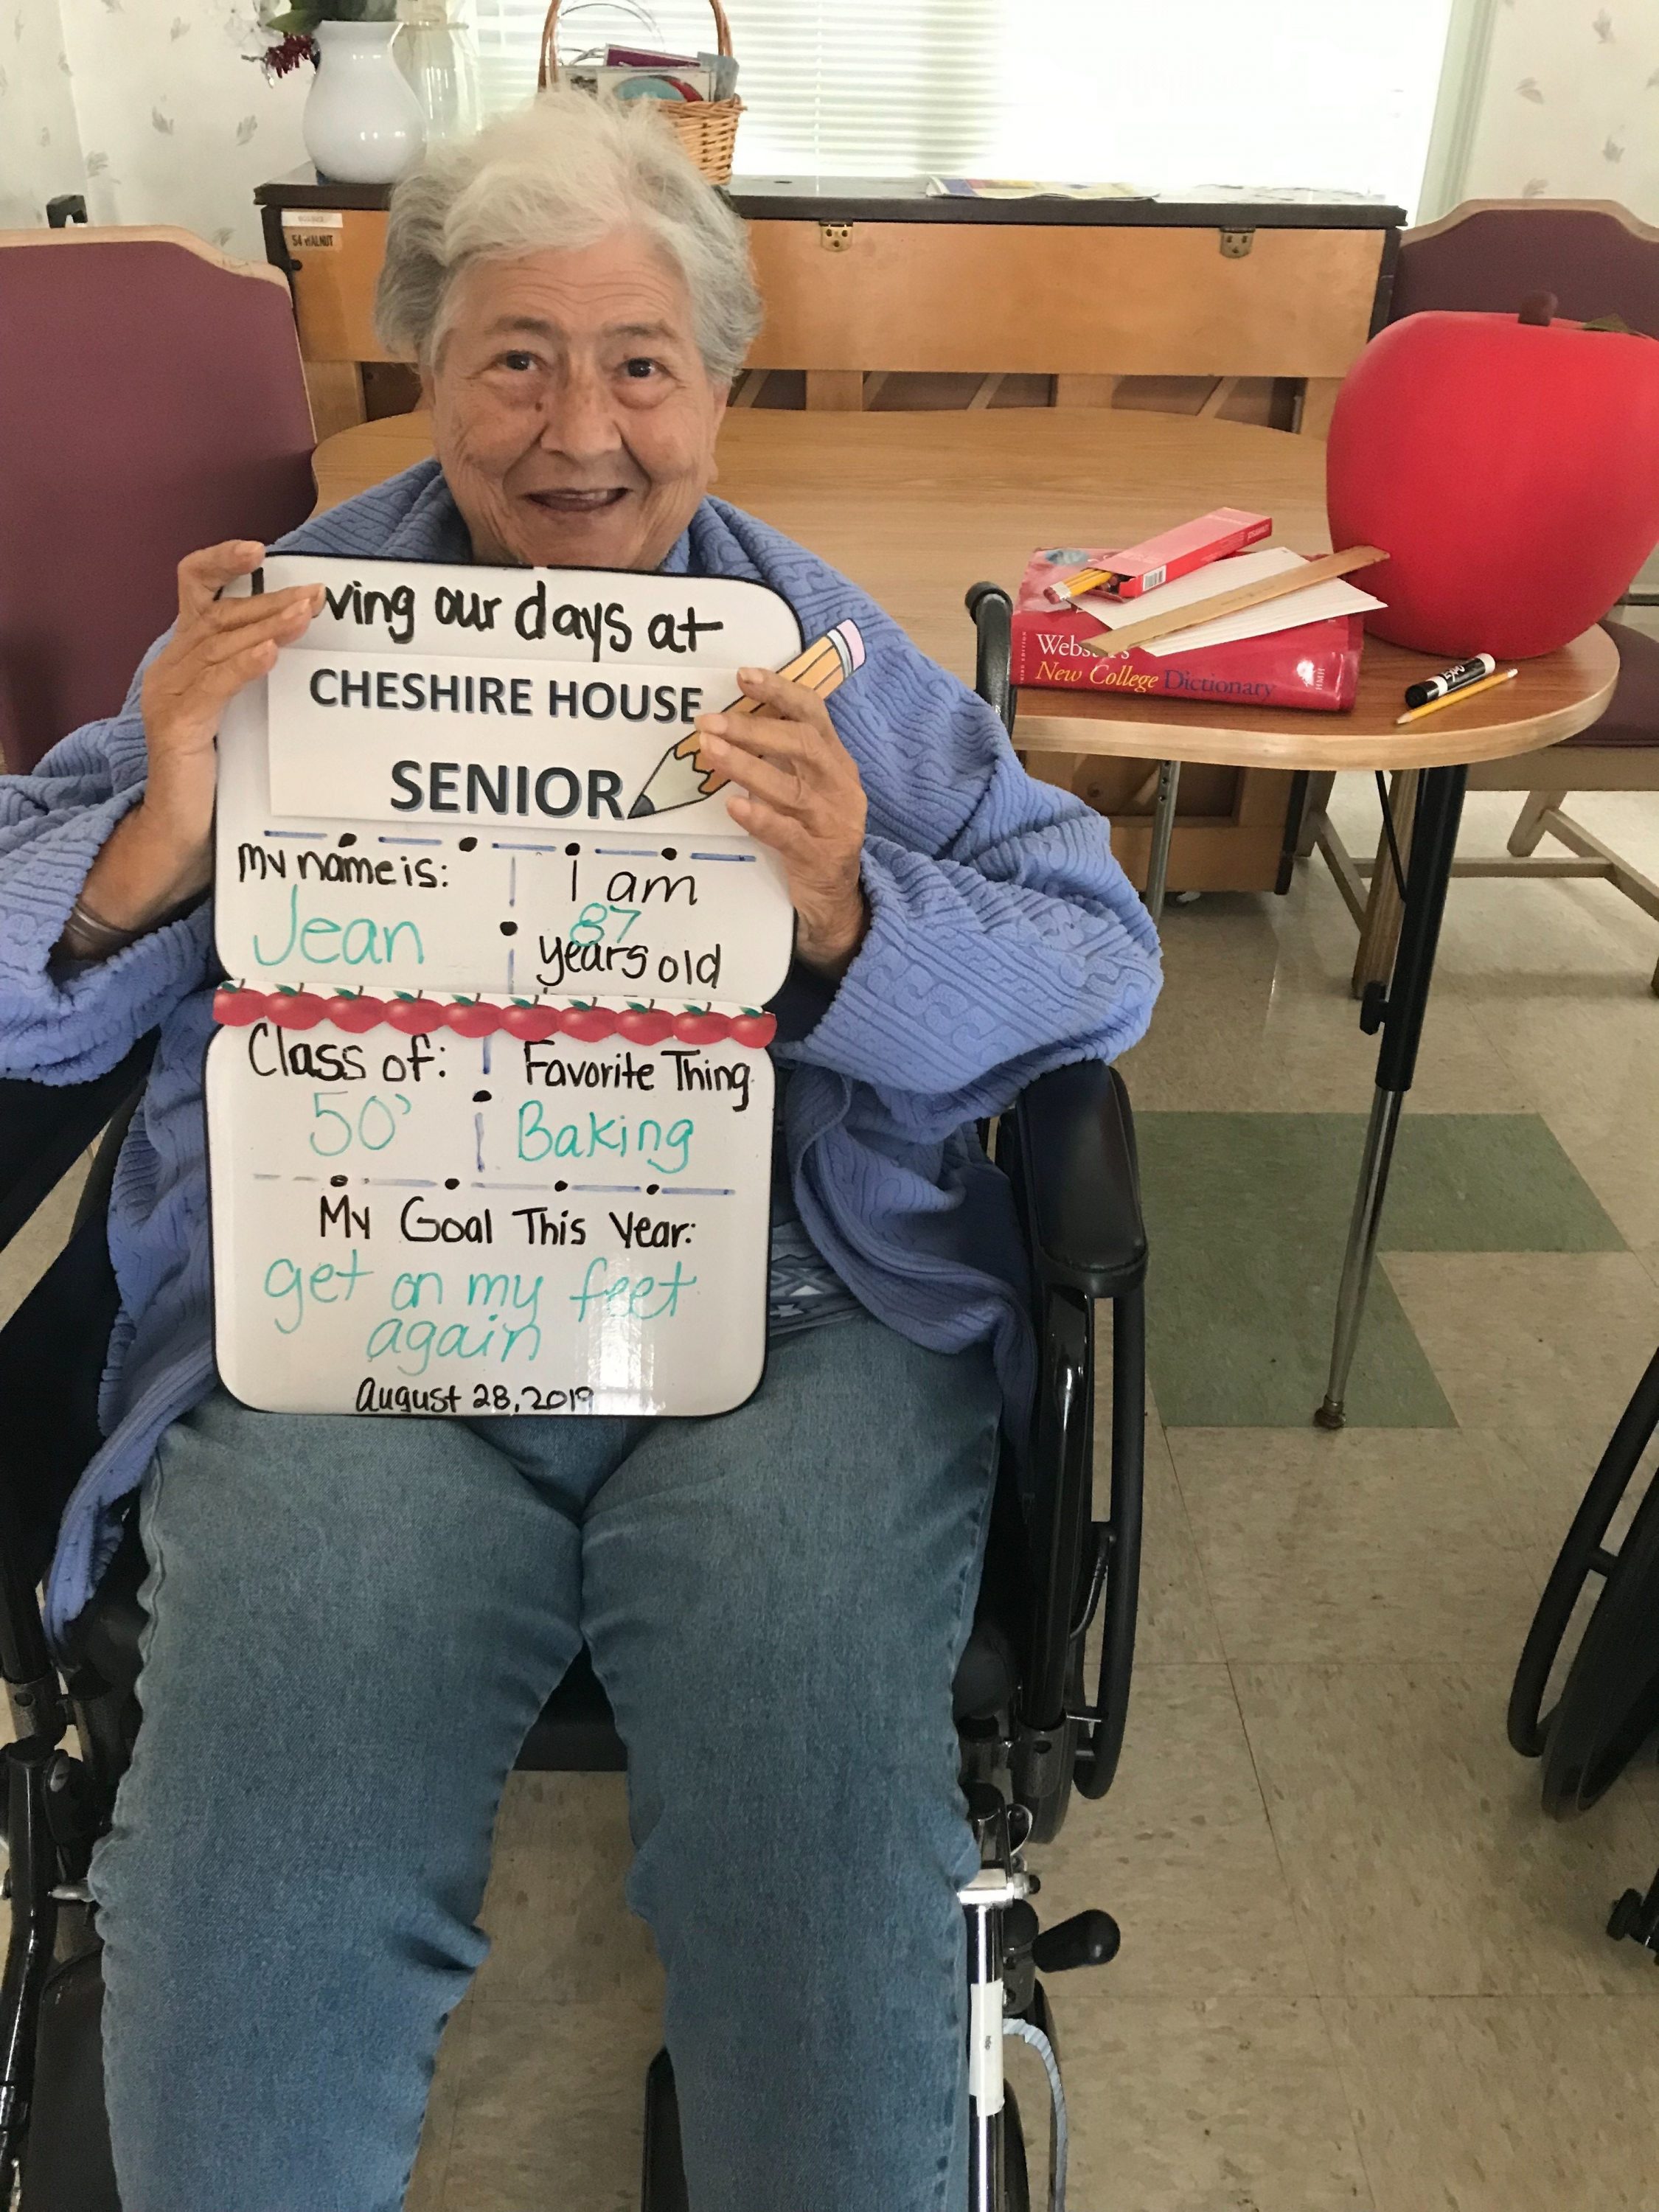 ving our days at
CHESHIRE HOUSE
SENIOR
My name is:
Jean
I am
87
years old
Class of:
50'
Favorite Thing
Baking
My Goal This Year:
get on my feet
again
August 28, 2019
54 WALNUT
New College Dictionary
EXPO